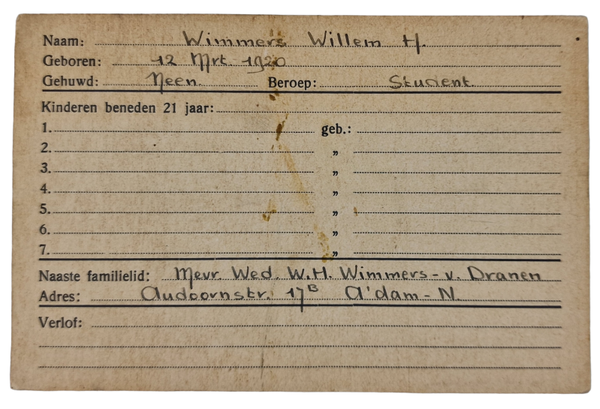 Naam: Wimmers Willem H.
Geboren: 12 Mrt. 1920
Gehuwd: Neen. Beroep: Student.
Kinderen beneden 21 jaar:
1. geb.:
2. „
3. „
4. „
5. „
6. „
7. „
Naaste familielid: Mevr. Wed. W.H. Wimmers - v. Dranen
Adres: Audoornstr. 17B A'dam - N.
Verlof: